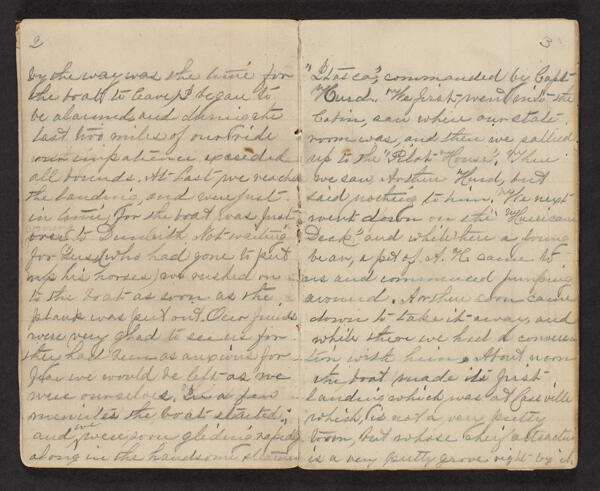 2
by the way was the time for
the boat to leave) I began to
be alarmed and during the
last two miles of our ride
our impatience exceeded
all bounds. At last we reached
the landing and were just
in time, for the boat was just
over to Dunleith. Not waiting
for (who had gone to put
up his horses) we rushed on
to the boat as soon as the
plank was put out. Our friends
were very glad to see us for
they had been as anxious for
fear we would be left as we
were ourselves. In a few
menutes the boat started,
and we were soon gliding rapidly
along in the handsome steamer
3
"Itasca", commanded by Capt
Hurd. We first went into the
Cabin, saw where our state
room was, and then we sallied
up to the "Pilot House". Then
we saw Arthur Hurd, but
said nothing to him. We next
went down on the "Hurricane
Deck" and while then a young
bear, a pet of A. H. came to
us and commenced jumping
around. Arthur soon came
down to take it away, and
while there we had a conversa
tion with him. About noon
the boat made its first
landing which was at Cassville
which, is not a very pretty
town, but whose cheif attraction
is a very pretty grove right by it.